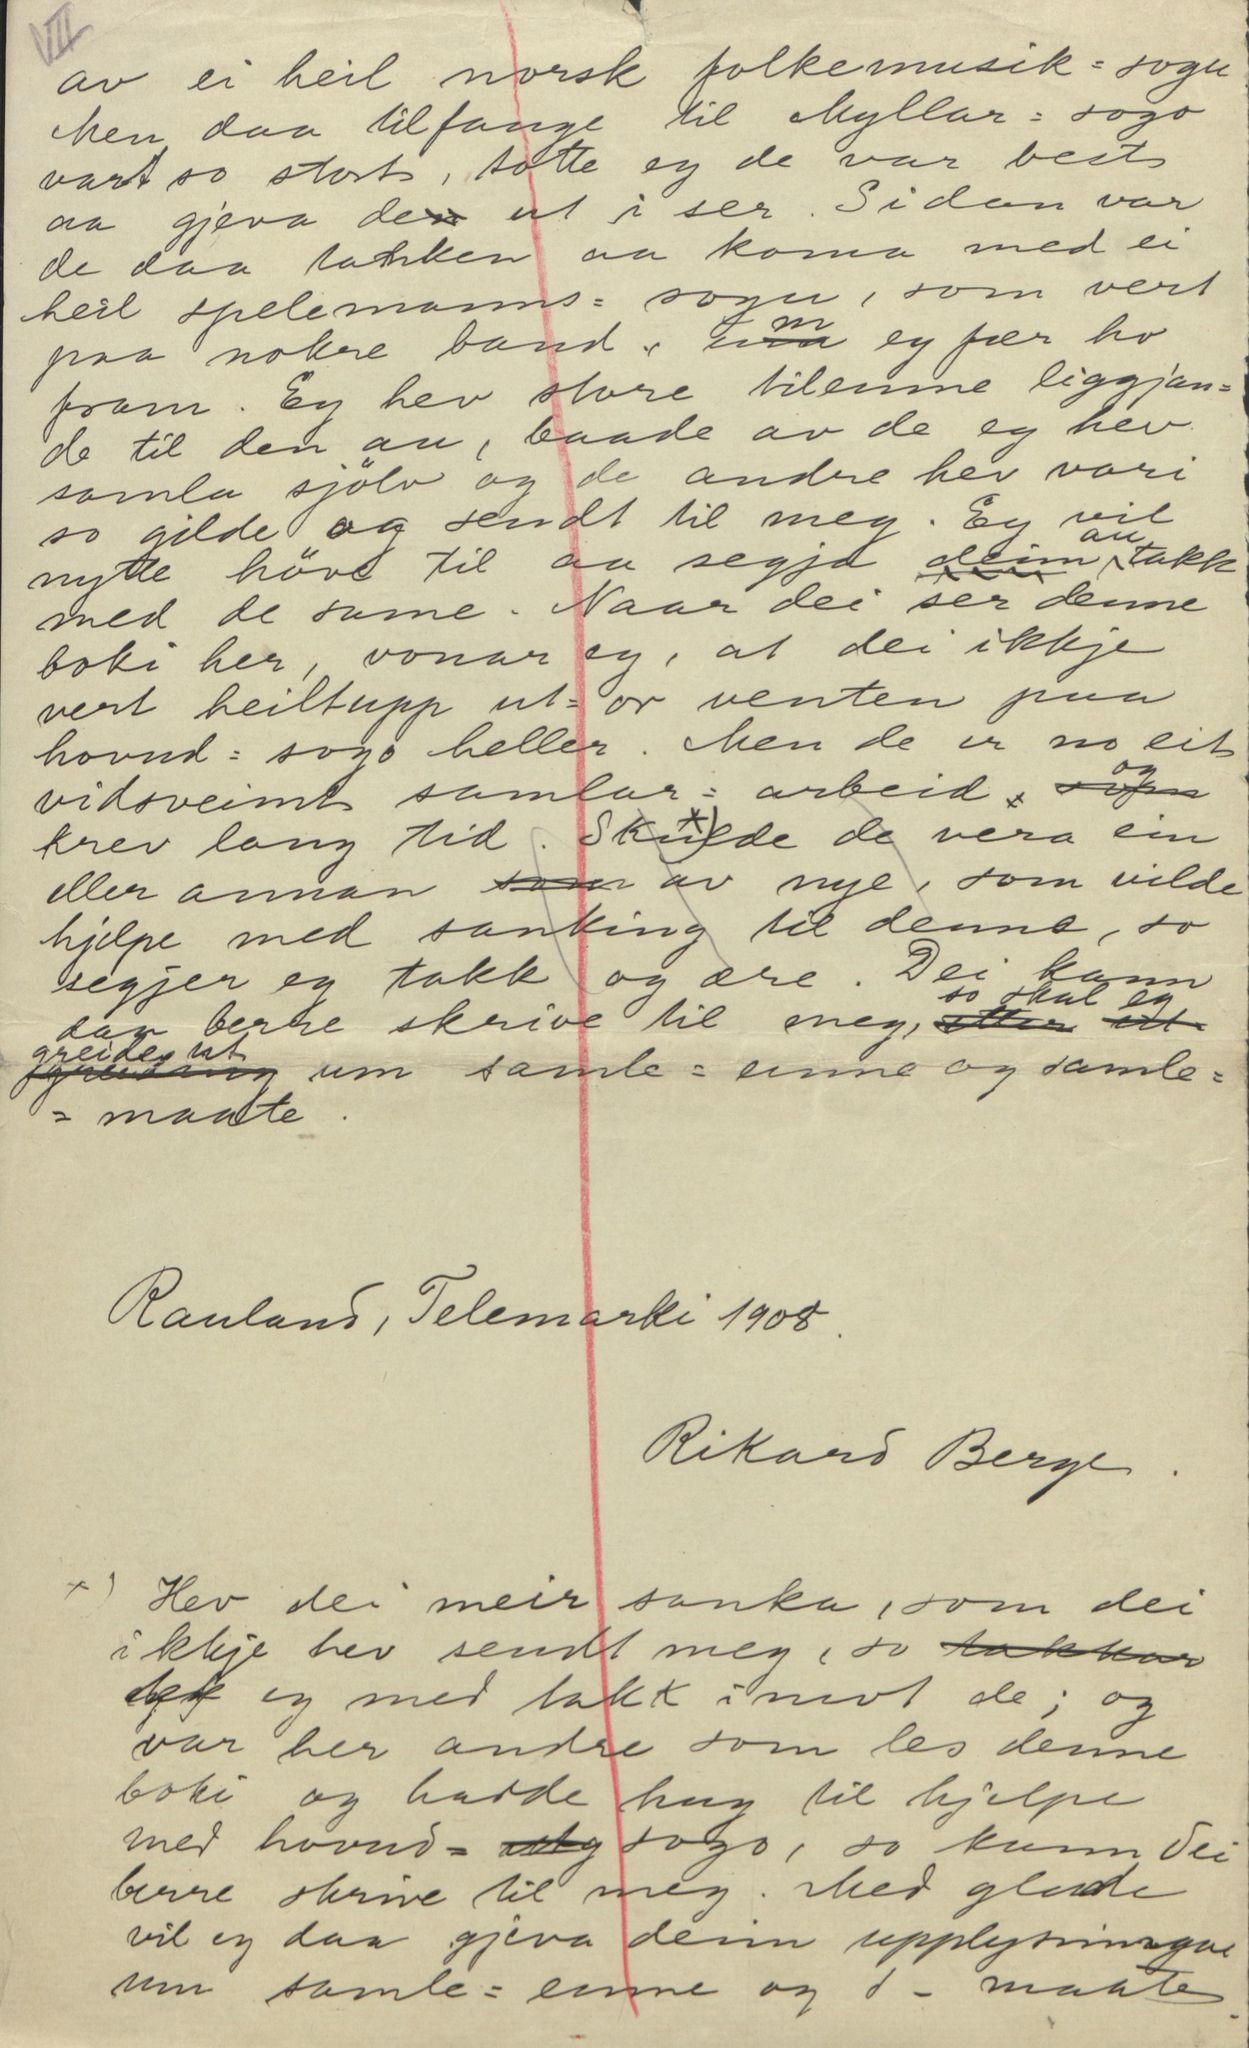 VIII
av ei heil norsk folkemusik=sogu
Men daa tilfange til Myllar=sogo
vart so stort, totte eg de var best
aa gjeva den ut i ser. Sidan var
de daa tanken aa koma med ei
heil spelemanns=sogu, som vert
paa nokre band, um eg fær ho
fram. Eg hev store tilemne liggjan=
de til den au, baade av de eg hev
samla sjölv og de andre hev vori
so gilde og sendt til meg. Eg vil
nytte höve til aa segja deim au takk
med de same. Naar dei ser denne
boki her, vonar eg, at dei ikkje
vert heiltupp ut=or venten paa
hovud=sogo heller. Men de er no eit
vidsveimt samlar=arbeid, som og
krev lang tid. *) Skulde de vera ein
eller annan som av nye, som vilde
hjelpe med sanking til denne, so
segjer eg takk og ære. Dei kann
daa berre skrive til meg, etter ut so skal eg
greiding greide ut um samle=emne og samle=
=maate.
Rauland, Telemarki 1908.
Rikard Berge.
*) Hev dei meir sanka, som dei
ikkje hev sendt meg, so takkar
eg med takk imot de; og
var her andre som les denne
boki og hadde hug til hjelpe
med hovud=sogo, so kann dei
berre skrive til meg. Med glede
vil eg daa gjeva deim upplysningar
um samle=emne og s-maate.